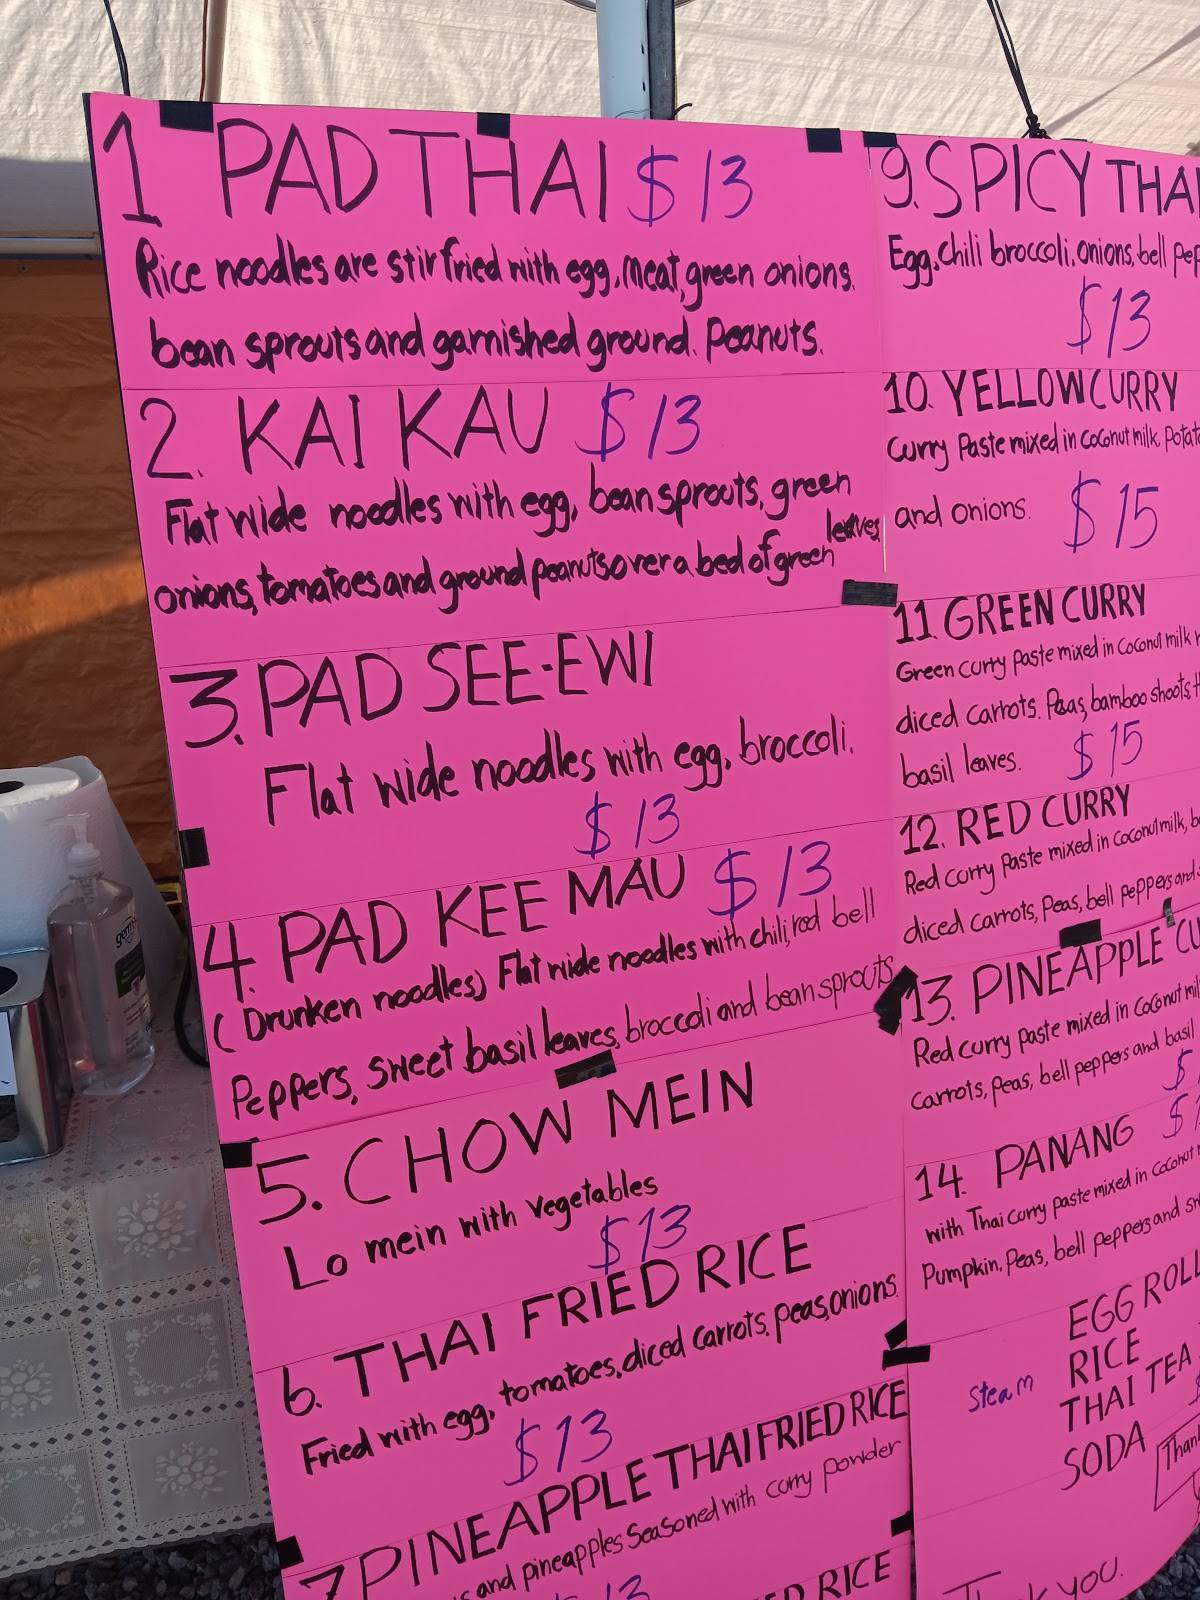 1 PAD THAI $13
Rice noodles are stir fried with egg, meat, green onions.
bean sprouts and garnished ground. Peanuts.
2. KAI KAU $13
Flat wide noodles with egg, bean sprouts, green
leaves
onions, tomatoes and ground peanuts over a bed of green
3. PAD SEE-EWI
Flat wide noodles with egg, broccoli.
$13
4. PAD KEE MAU $13
(Drunken noodles) Flat wide noodles with chili, red bell
Peppers, sweet basil leaves, broccoli and bean sprouts
5. CHOW MEIN
Lo mein with vegetables
$13
6. THAI FRIED RICE
Fried with egg, tomatoes, diced carrots, peas, onions.
$13
7. PINEAPPLE THAI FRIED RICE
and pineapples seasoned with curry powder
13
RICE
9. SPICY THAI
Egg, Chili broccoli, onions, bell
$13
10. YELLOW CURRY
Curry Paste mixed in coconut milk,
and onions. $15
11 GREEN CURRY
Green curry Paste mixed in coconut milk
diced carrots. Peas, bamboo shoots,
basil leaves. $15
12. RED CURRY
Red curry Paste mixed in coconut milk,
diced carrots, Peas, bell peppers and
13. PINEAPPLE
Red curry paste mixed in coconut
carrots, peas, bell peppers and basil
$
14. PANANG $
with Thai curry paste mixed in coconut
Pumpkin, Peas, bell peppers and
EGG ROLL
Steam RICE
THAI TEA
SODA
Thank you.